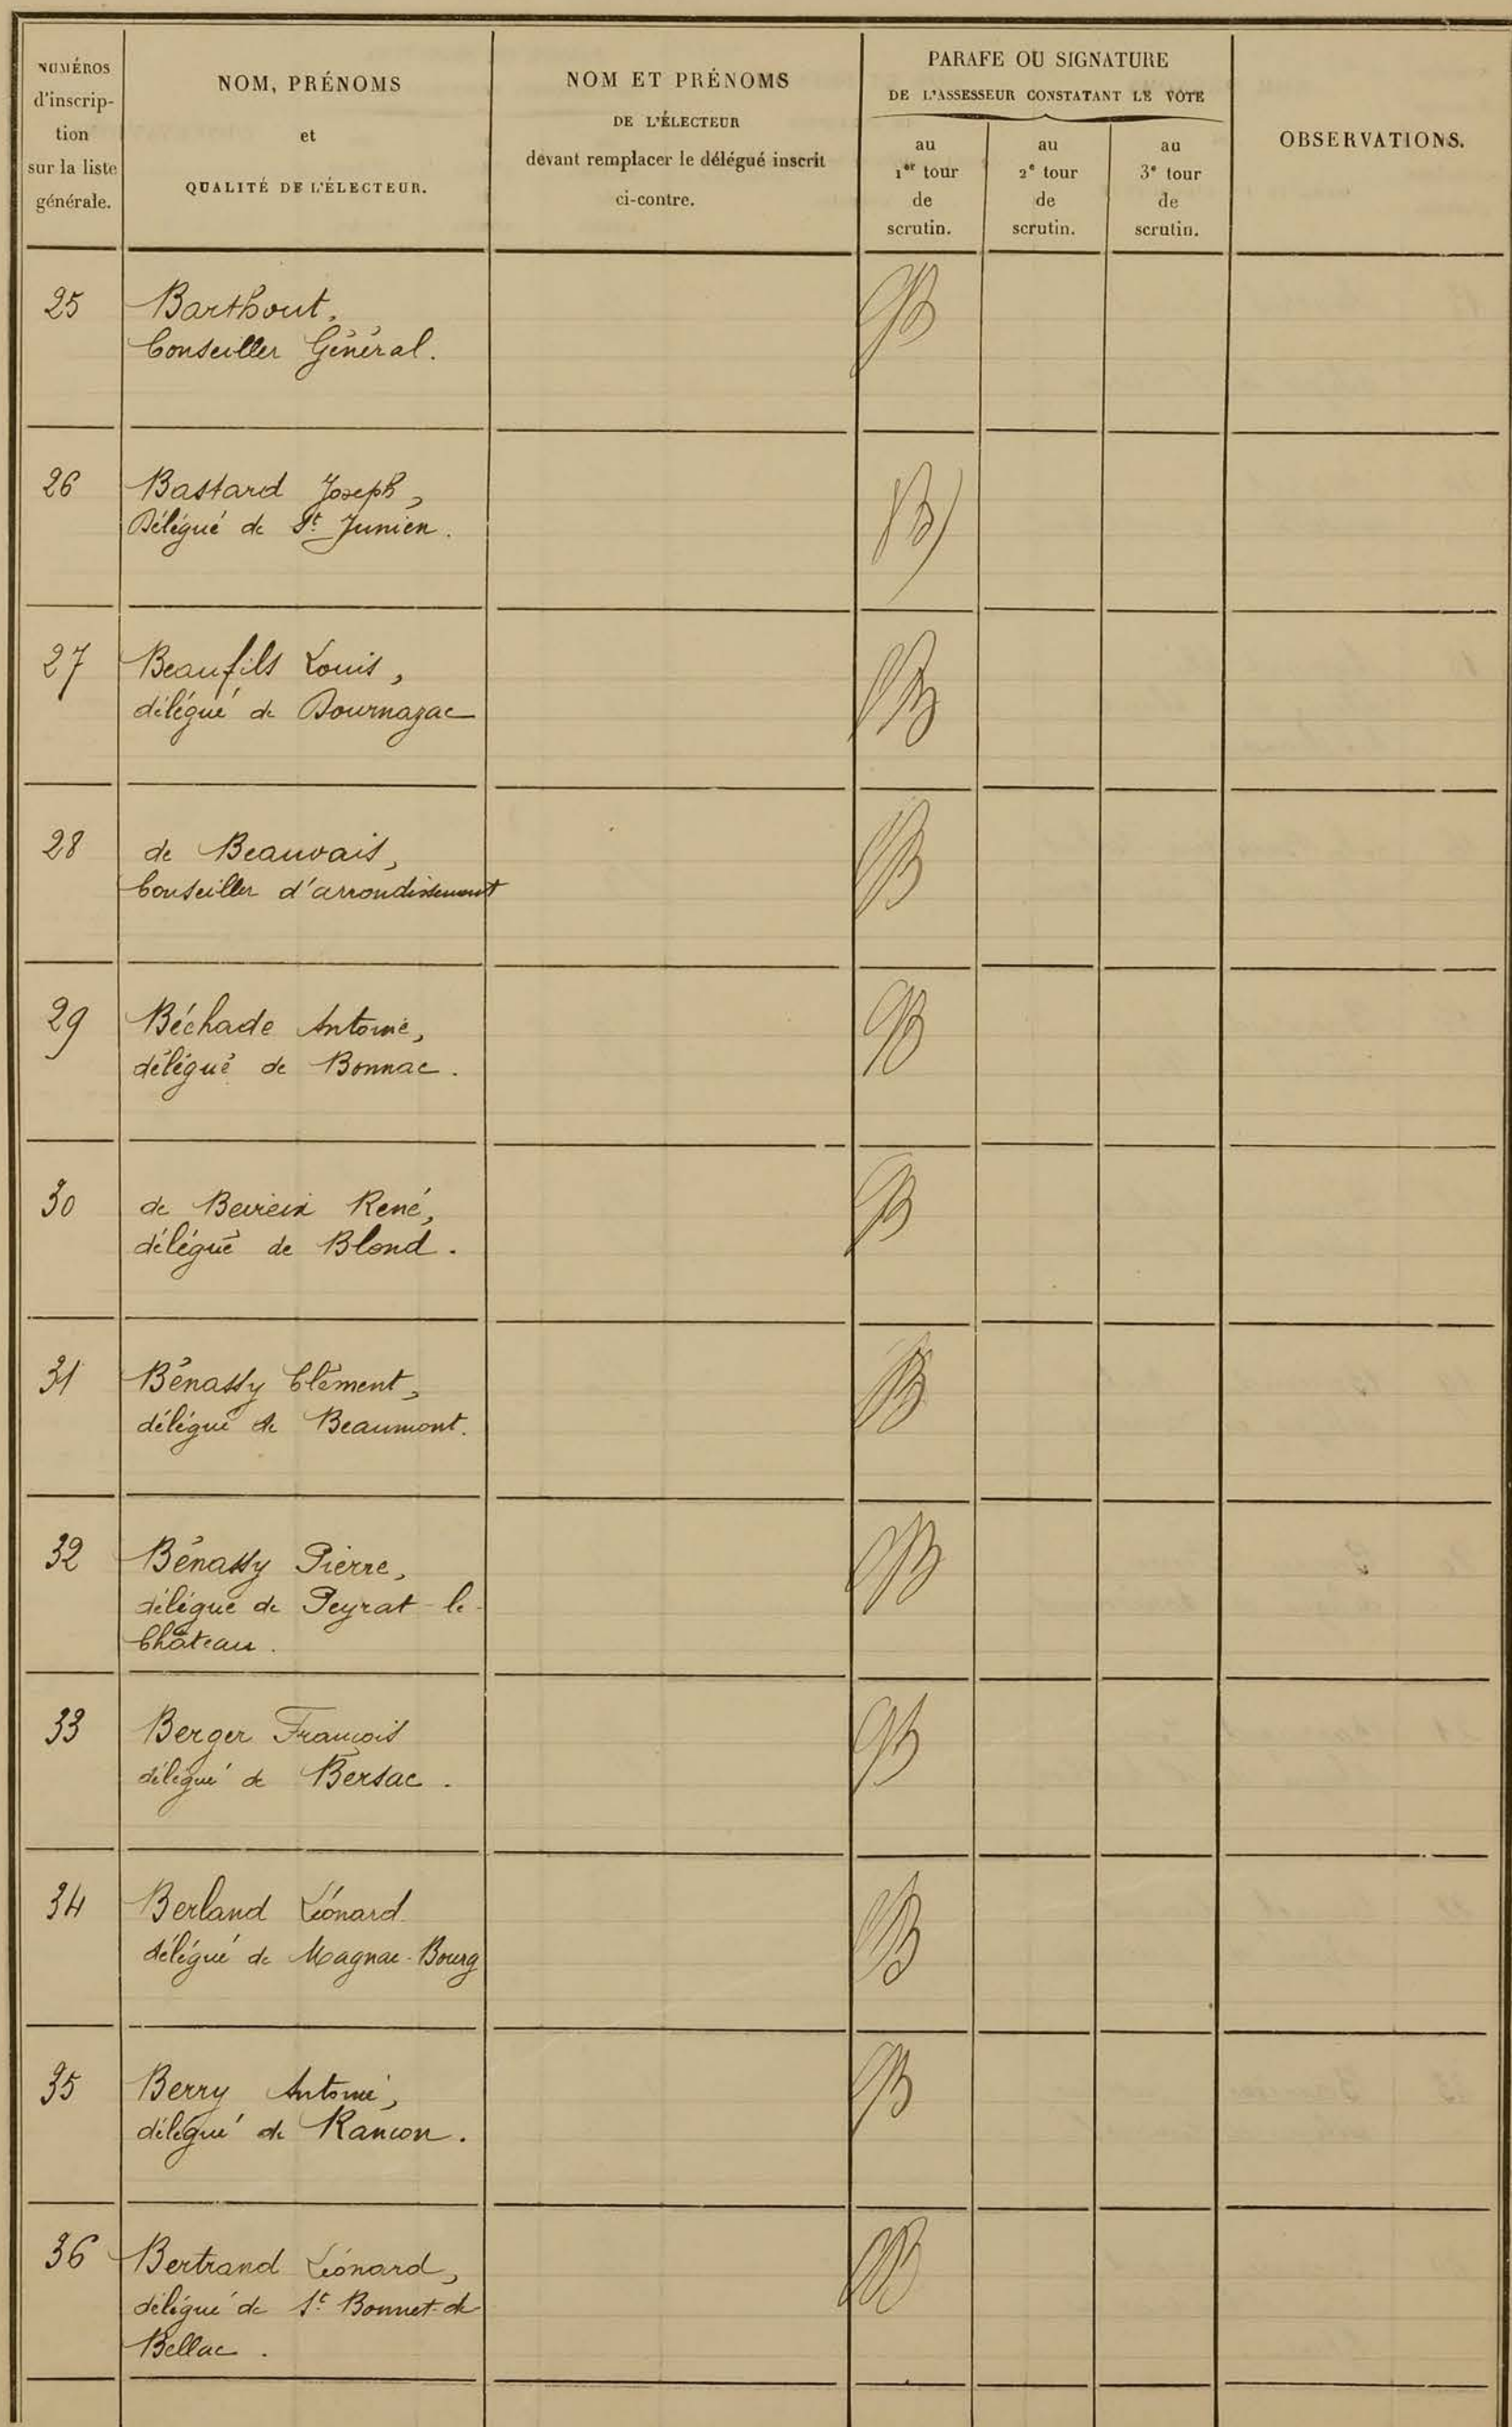 NUMÉROS
d'inscrip-
tion
sur la liste
générale.
NOM, PRÉNOMS
et
QUALITÉ DE L'ÉLECTEUR.
NOM ET PRÉNOMS
DE L'ÉLECTEUR
devant remplacer le délégué inscrit
ci-contre.
PARAFE OU SIGNATURE
DE L'ASSESSEUR CONSTATANT LE VOTE
au
1er tour
de
scrutin.
au
2e tour
de
scrutin.
au
3e tour
de
scrutin.
OBSERVATIONS.
25 Barthout,
Conseiller Général.
26 Bastard Joseph,
Délégué de St Junien.
27 Beaufils Louis,
délégué de Dournazac
28 de Beauvais,
Conseiller d'arrondissement
29 Béchade Antoine,
délégué de Bonnac.
30 de René,
délégué de Blond.
31 Bénassy Clément,
délégué de Beaumont.
32 Bénassy Pierre,
délégué de Peyrat-le-
Château.
33 Berger François
délégué de Bersac.
34 Berland Léonard
délégué de Magnac-Bourg
35 Berry Antoine,
délégué de Rancon.
36 Bertrand Léonard,
délégué de St Bonnet-de
Bellac.